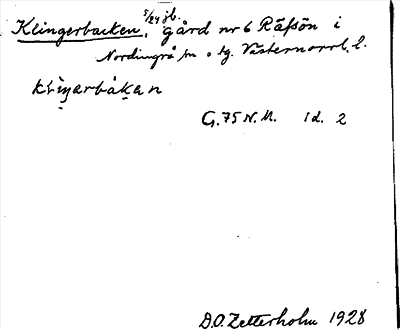 5/24 jb.
Klingerbacken, gård nr 6 Räfsön i
Nordingrå sn o tg. Västernorrl. l.
klìŋarbàkan
G. 75 N. M. 1d. 2
D.O. Zetterholm 1928